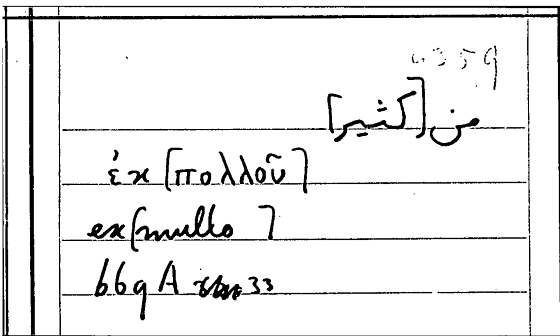 4359
من [كثير]
ἐκ [πολλοῦ]
ex [multo]
669 A 33